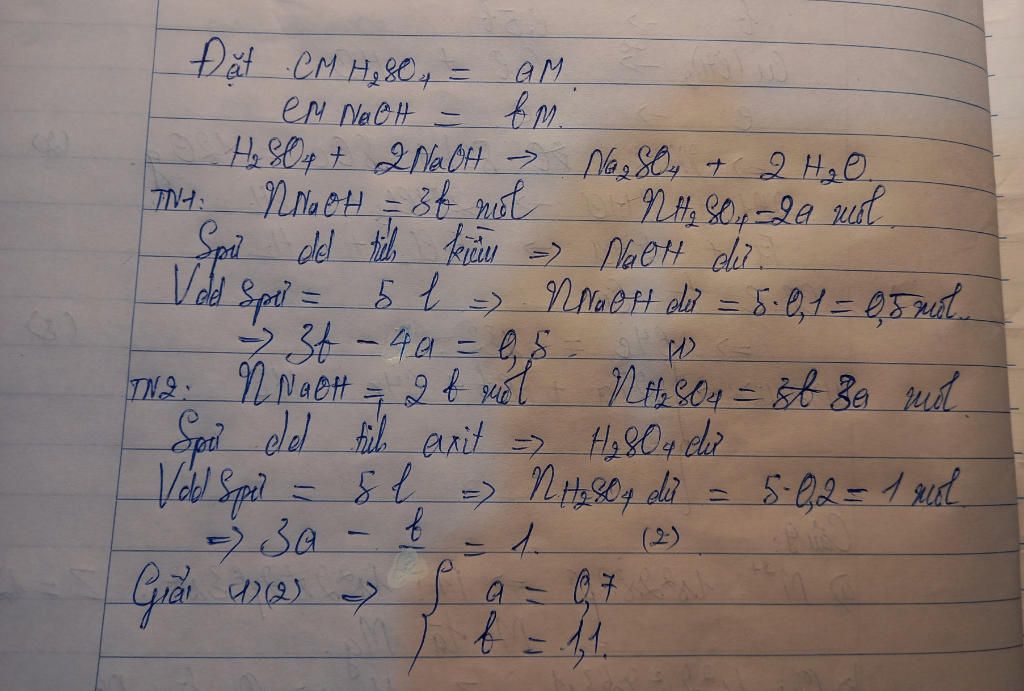 Đặt CM H₂SO₄ = aM.
CM NaOH = bM.
H₂SO₄ + 2NaOH → Na₂SO₄ + 2H₂O.
TN1: nNaOH = 3b mol nH₂SO₄ = 2a mol
Spứ dd tính kiềm => NaOH dư.
Vdd Spứ = 5 l => nNaOH dư = 5.0,1 = 0,5 mol.
=> 3b - 4a = 0,5 (1)
TN2: nNaOH = 2b mol nH₂SO₄ = 3b 3a mol
Spứ dd tính axit => H₂SO₄ dư
Vdd Spứ = 5 l => nH₂SO₄ dư = 5.0,2 = 1 mol
=> 3a - b = 1. (2)
Giải (1)(2) => { a = 0,7
b = 1,1.